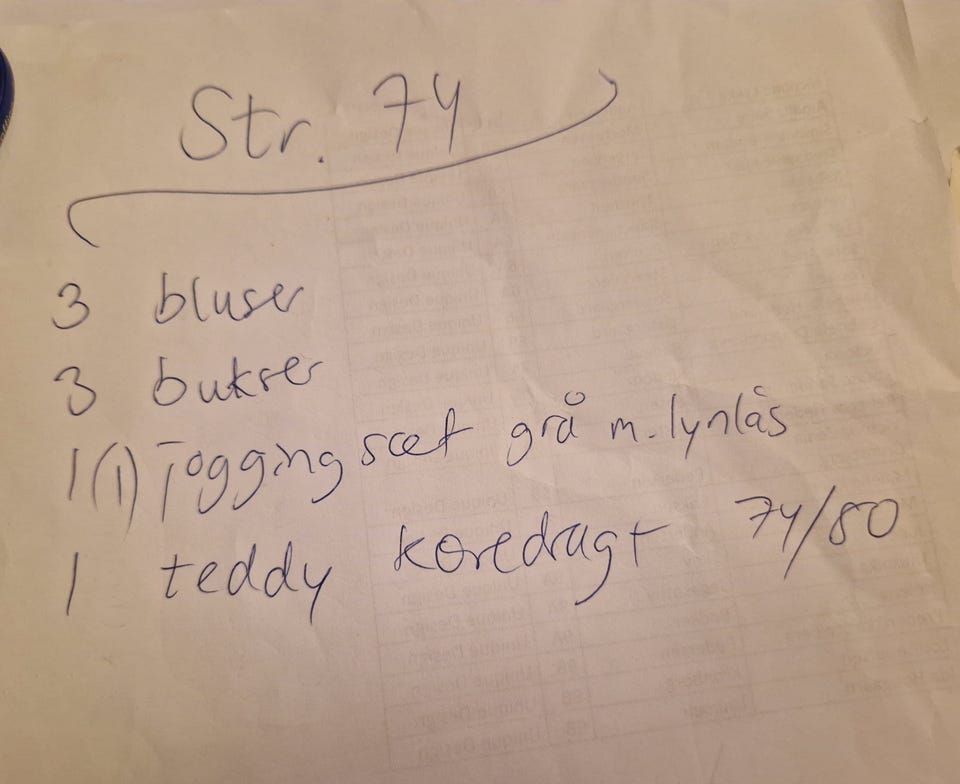 Str. 74
3 bluser
3 bukser
1(1) joggingsæt grå m. lynlås
1 teddy køredragt 74/80